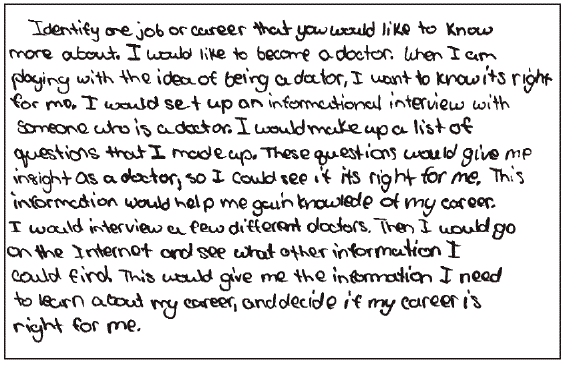 Identify one job or career that you would like to know
more about. I would like to become a doctor. When I am
playing with the idea of being a doctor, I want to know its right
for me. I would set up an informational interview with
someone who is a doctor. I would make up a list of
questions that I made up. These questions would give me
insight as a doctor, so I could see if its right for me. This
information would help me gain knowlede of my career.
I would interview a few different doctors. Then I would go
on the Internet and see what other information I
could find. This would give me the information I need
to learn about my career, and decide if my career is
right for me.